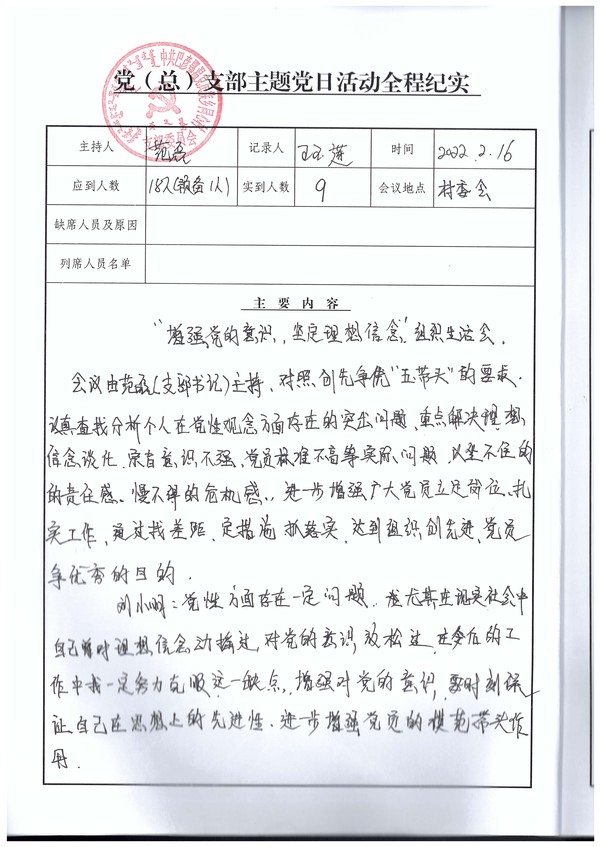 党（总）支部主题党日活动全程纪实
支部委员会
主持人 范磊 记录人 王玉莲 时间 2022.2.16
应到人数 18人(预备1人) 实到人数 9 会议地点 村委会
缺席人员及原因
列席人员名单
主要内容
“增强党的意识，坚定理想信念”组织生活会．
会议由范磊(支部书记)主持、对照创先争优“五带头”的要求．
认真查找分析个人在党性观念方面存在的突出问题，重点解决理想
信念淡化、宗旨意识不强、党员标准不高等实际问题，以坐不住的
的责任感、慢不得的危机感、进一步增强广大党员立足岗位、扎
实工作，通过找差距、定措施 抓落实，达到组织创先进、党员
争优秀的目的．
刘小明：党性方面存在一定问题．尤其在现实社会中
自己有时理想信念动摇过，对党的意识，放松过，在今后的工
作中我一定努力克服这一缺点，增强对党的意识，要时刻保
证自己在思想上的先进性．进一步增强党员的模范带头作
用．